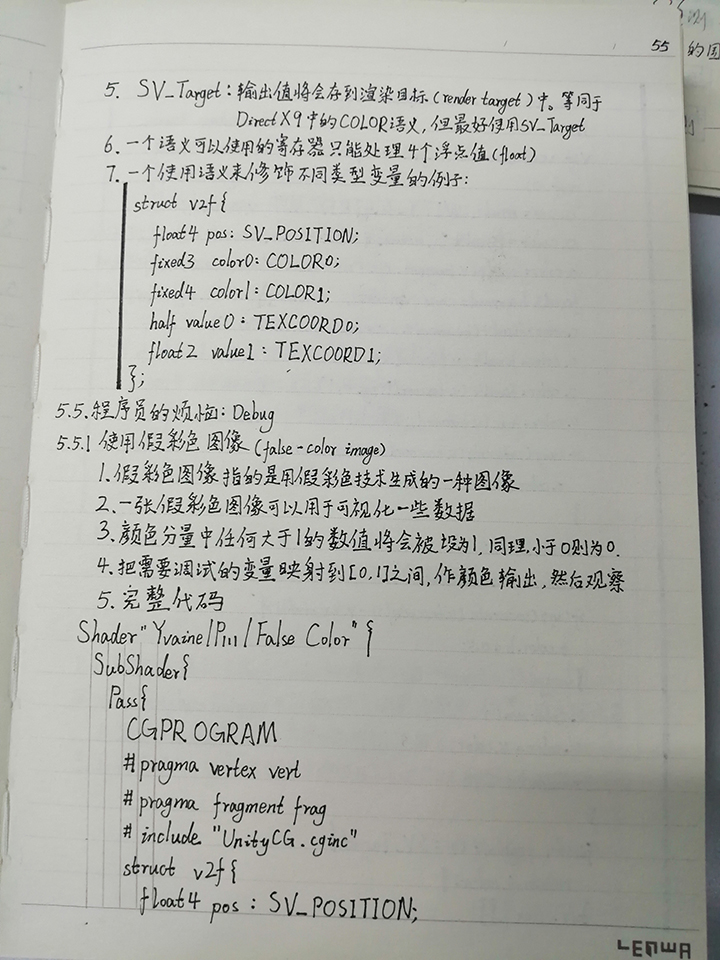 55
的图
5. SV_Target：输出值将会存到渲染目标(render target)中。等同于
DirectX9中的COLOR语义，但最好使用SV_Target
6. 一个语义可以使用的寄存器只能处理4个浮点值(float)
7. 一个使用语义来修饰不同类型变量的例子：
struct v2f{
float4 pos: SV_POSITION;
fixed3 color0: COLOR0;
fixed4 color1: COLOR1;
half value0: TEXCOORD0;
float2 value1: TEXCOORD1;
};
5.5.程序员的烦恼：Debug
5.5.1 使用假彩色图像(false-color image)
1. 假彩色图像指的是用假彩色技术生成的一种图像
2. 一张假彩色图像可以用于可视化一些数据
3. 颜色分量中任何大于1的数值将会被设为1，同理，小于0则为0.
4. 把需要调试的变量映射到[0,1]之间，作颜色输出，然后观察
5. 完整代码
Shader "Yvaine/P111/False Color" {
SubShader{
Pass{
CGPROGRAM
#pragma vertex vert
#pragma fragment frag
#include "UnityCG.cginc"
struct v2f{
float4 pos: SV_POSITION;
LENWA